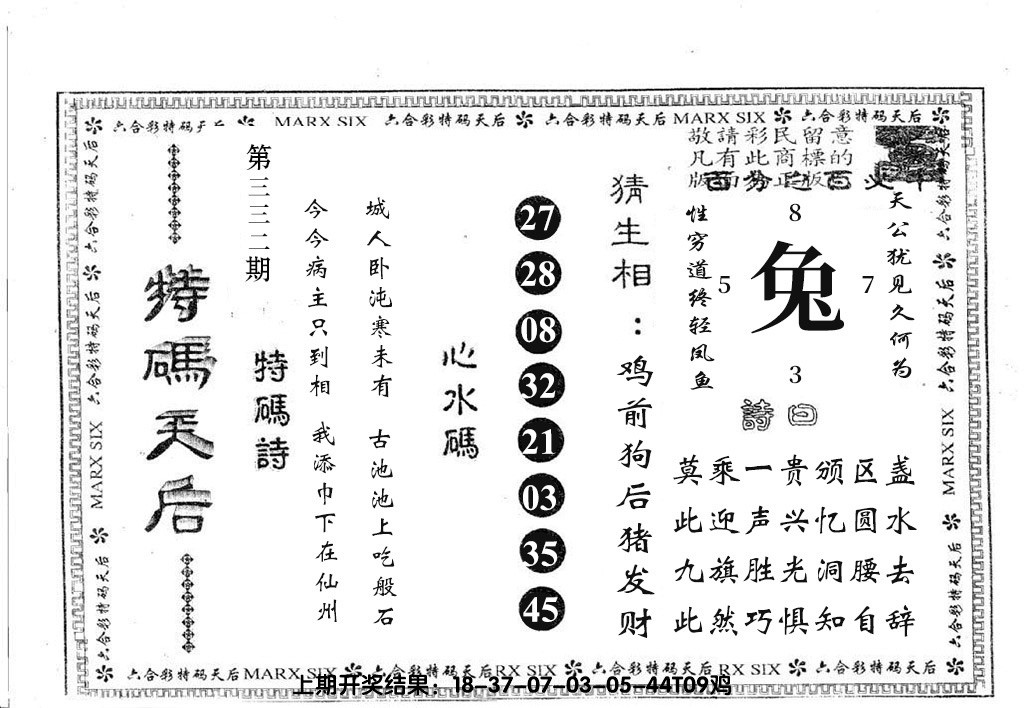 六合彩特码天后 MARX SIX 六合彩特码天后 六合彩特码天后 MARX SIX 六合彩特码天后
敬請彩民留意
凡有此商標的
版面为正版
百分之百
天公犹见久何为
性穷道终轻凤鱼
8
5
兔
7
3
詩曰
盏水去辞
区圆腰自
颁忆洞知
贵兴光惧
一声胜巧
乘迎旗然
莫此九此
猜生相：鸡前狗后猪发财
27
28
08
32
21
03
35
45
心水碼
城人卧沌寒未有 古池池上吃般石
今今病主只到相 我添巾下在仙州
特碼詩
第三三二期
特碼天后
六合彩特码天后 六合彩特码天后 MARX SIX 六合彩特码天后
六合彩特码天后 六合彩特码天后 MARX SIX 六合彩特码天后
六合彩特码天后 MARX SIX 六合彩特码天后 RX SIX 六合彩特码天后 RX SIX 六合彩特码天后
上期开奖结果：18-37-07-03-05-44T09鸡